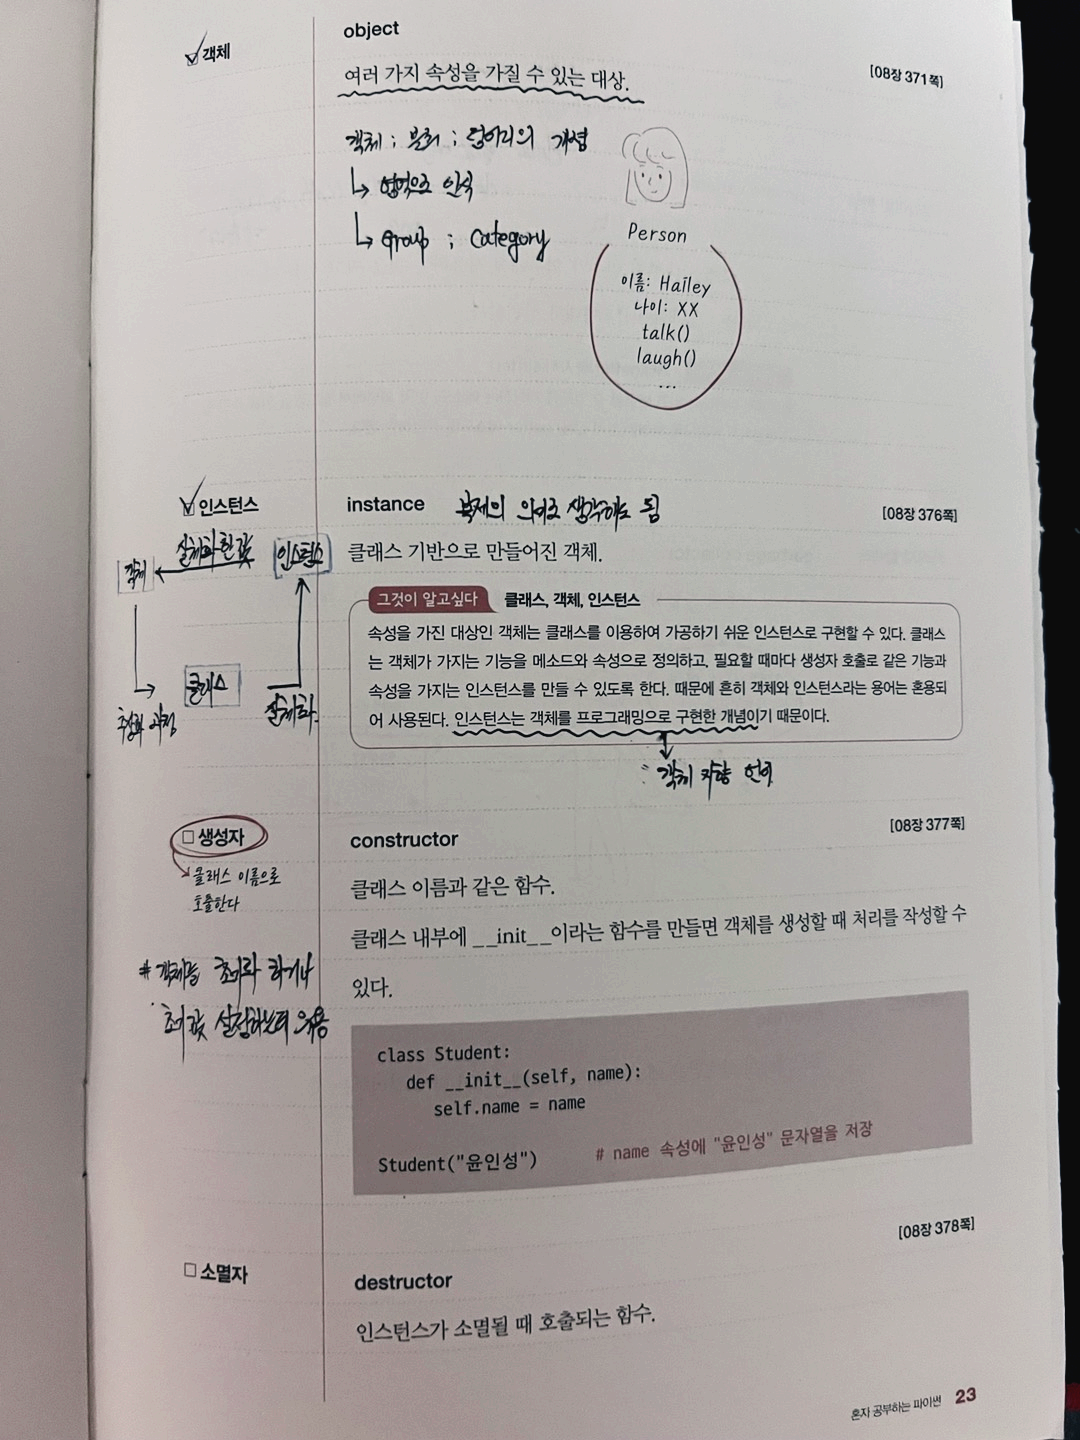 객체
object
[08장 371쪽]
여러 가지 속성을 가질 수 있는 대상.
객체 ; 분리 ; 덩어리의 개념
↳ 영역으로 인식
↳ group ; category
Person
이름: Hailey
나이: XX
talk()
laugh()
...
인스턴스
instance 복제의 의미로 생각해도 됨
[08장 376쪽]
클래스 기반으로 만들어진 객체.
객체 ← 실체화 한 값 인스턴스
클래스
추상화 과정
실체화
그것이 알고싶다 클래스, 객체, 인스턴스
속성을 가진 대상인 객체는 클래스를 이용하여 가공하기 쉬운 인스턴스로 구현할 수 있다. 클래스
는 객체가 가지는 기능을 메소드와 속성으로 정의하고, 필요할 때마다 생성자 호출로 같은 기능과
속성을 가지는 인스턴스를 만들 수 있도록 한다. 때문에 흔히 객체와 인스턴스라는 용어는 혼용되
어 사용된다. 인스턴스는 객체를 프로그래밍으로 구현한 개념이기 때문이다.
객체 지향 언어
생성자
constructor
[08장 377쪽]
클래스 이름으로
호출한다
클래스 이름과 같은 함수.
클래스 내부에 __init__이라는 함수를 만들면 객체를 생성할 때 처리를 작성할 수
있다.
# 객체를 초기화 하거나
초기값 설정하는데 유용
class Student:
def __init__(self, name):
self.name = name
Student("윤인성") # name 속성에 "윤인성" 문자열을 저장
소멸자
destructor
[08장 378쪽]
인스턴스가 소멸될 때 호출되는 함수.
혼자 공부하는 파이썬 23